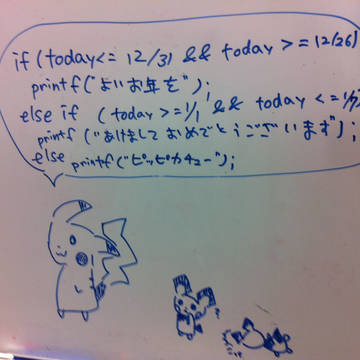 if (today <= 12/31 && today >= 12/26)
printf("よいお年を");
else if (today >= 1/1 && today <= 1/7)
printf("あけましておめでとうございます");
else printf("ピッピカチュー");